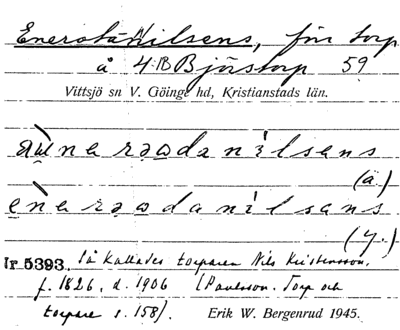 Enerotánilsens, för torp
å 4:1B Björstorp 59
Vittsjö sn V. Göinge hd, Kristianstads län.
nerəɷdanilsens
(ä.)
ènerəɷdanilsens
(y.)
Ir 5393. så kallades torparen Nils Kristensson,
f. 1826, d. 1906 (Paulsson. Torp och
torpare s. 158). Erik W. Bergenrud 1945.